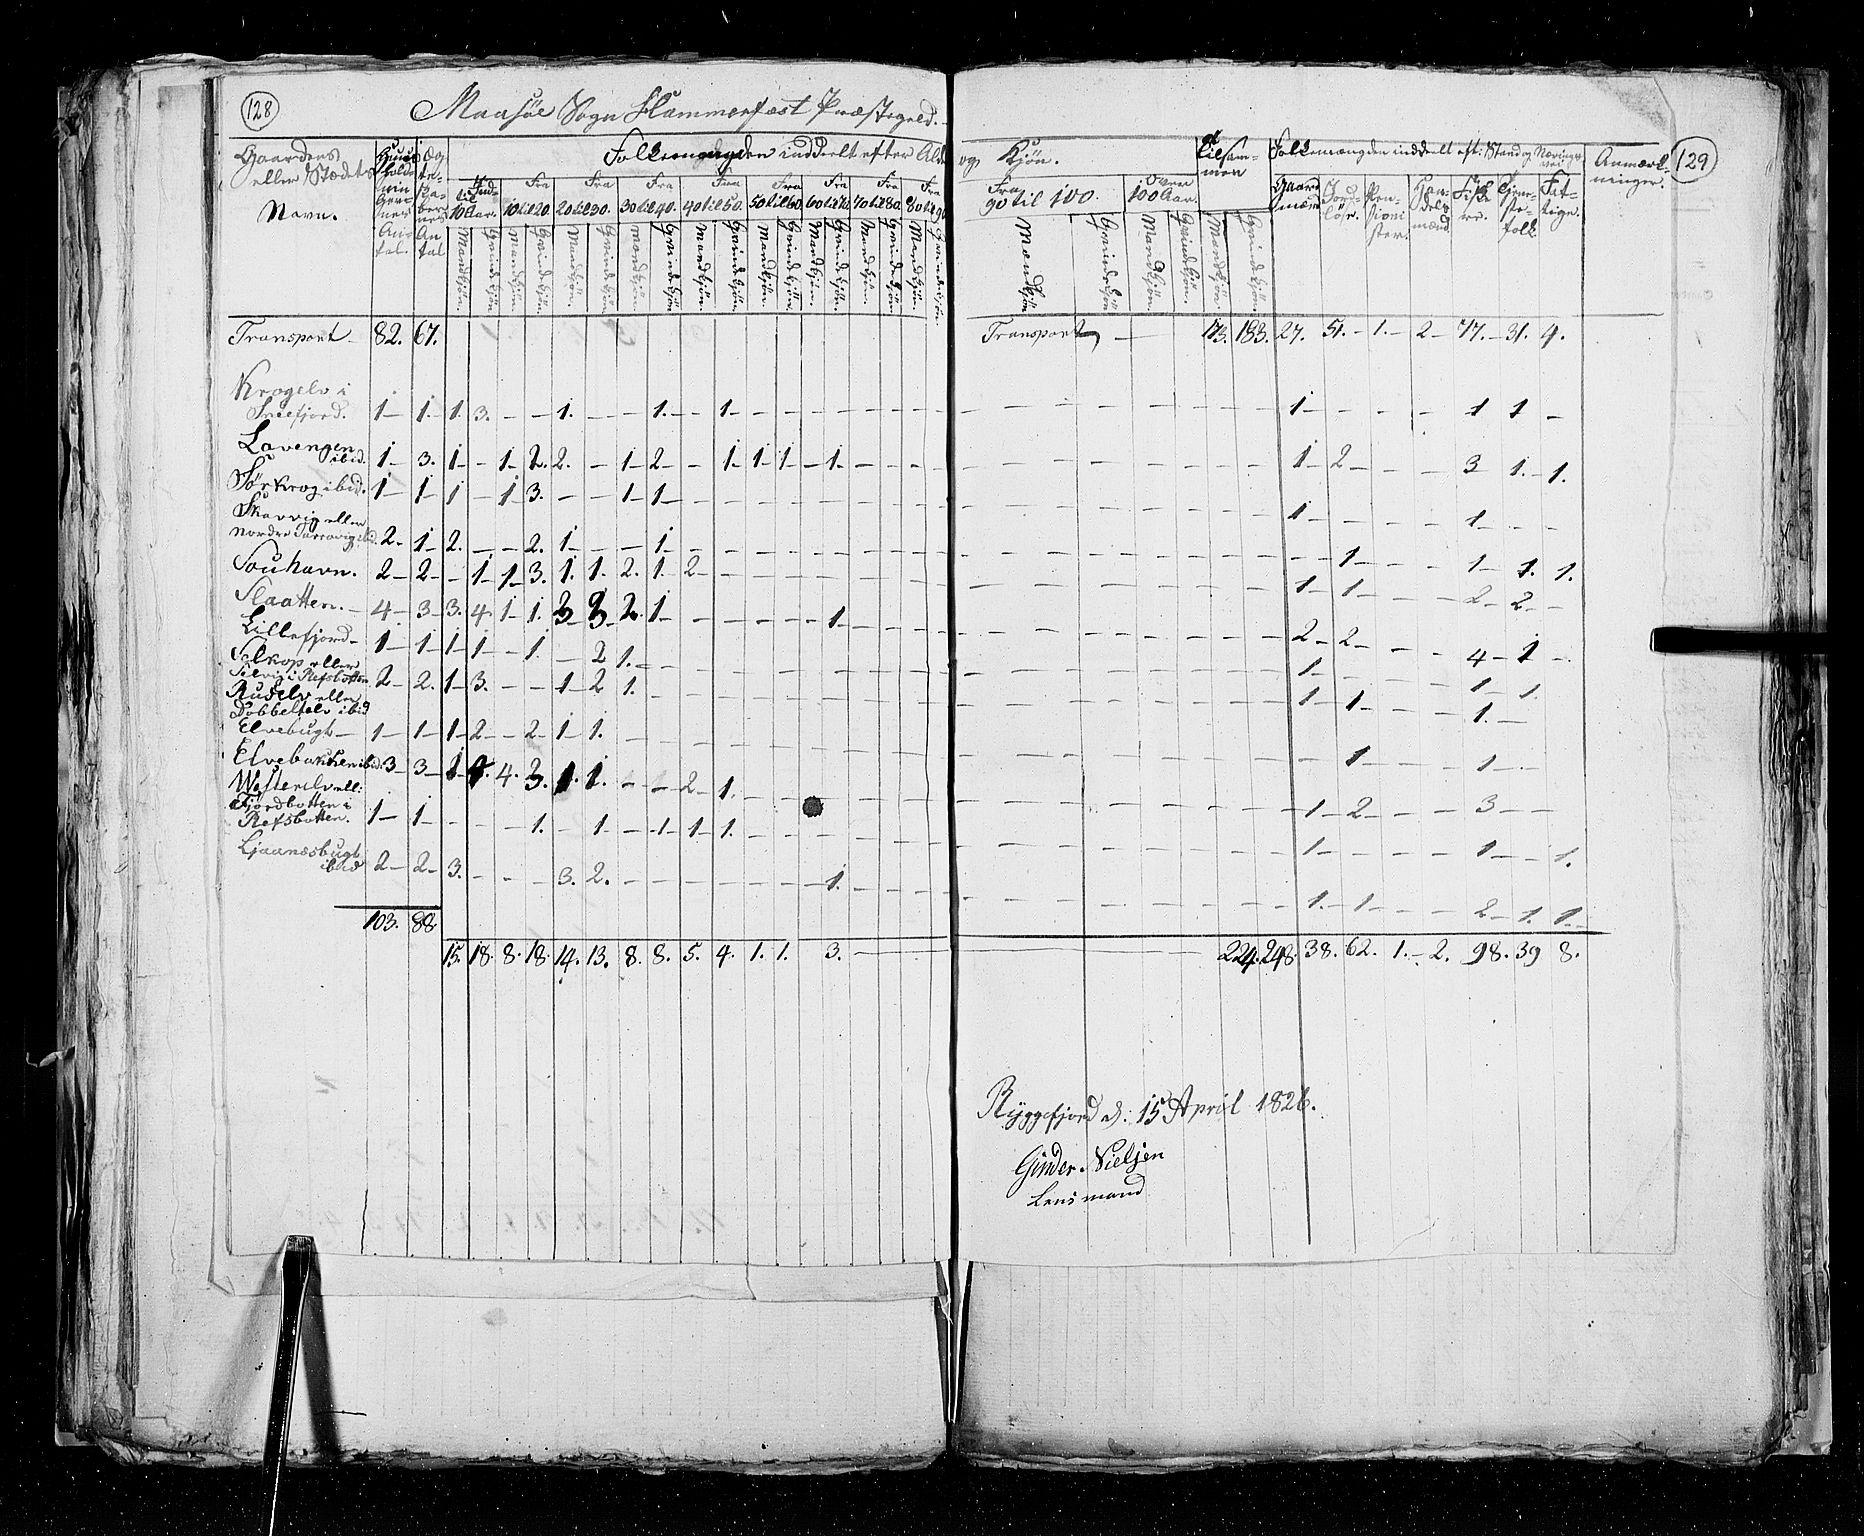 128
Maasöe Sogn Hammerfæst Præstegield.
Gaardens eller Stædets Navn.
Ægteskabernes Antal
Folkemængden inddeelt efter Alder
10 Aar. Fra 10 til 20. Fra 20 til 30. Fra 30 til 40. Fra 40 til 50. Fra 50 til 60. Fra 60 til 70. Fra 70 til 80. Fra 80 til 90
Mandkjön. Qvindekjön
Transport 82. 67.
Krogelv i
Sneefjord. 1 1 1. 3. - - 1. - - 1. - 1 - - - - - -
Lavengen
ibid. 1 3. 1 - 1 2. 2. - 1 2 - 1. 1 1 - 1. - - -
Sørkrog ibid. 1 1 1 - 1 3. - - 1 1 - - - - - - -
eller
Nordre ibid. 2. 1 2. - - 2. 1 - - 1 - - - - - - -
Souhavn. 2 2 - 1 1 3. 1. 1. 2. 1. 2 - - - - - -
Slaatten. 4 3 3. 4. 1 1. 3 3 2. 1 - - - - 1. - -
Lillefjord 1 1 1 1 - 1. - 2 1. - - - - - - -
Selkop eller
i Refsbotten 2 2. 1 3. - - 1 2 1. - - - - - - -
Ruselv eller
Dobbeltelv ibid
Elvebugt 1 1 1 2 - 2 1 1. - - - - - - - -
Elvebakken ibid. 3 3 4. 3. 1. 1. - - 2 1. - - - -
Westerelv ell:
Fjordbotten i
Refsbotten. 1 1 - - - 1. - 1 - 1 1 1. - - - - -
Ljaanæsbugt
ibid 2 2 3. - - - 3. 2. - - - - - - 1. - -
103. 88.
15. 18. 8. 18. 14. 13. 8. 8. 5. 4. 1. 1. 3.
129
og Kjön. Tilsammen Folkemængden inddeelt eft: Stand og Næringsvei Anmærkninger.
Fra 90 til 100. Over 100 Aar. Gaardmænd Jordløse. Pensionister. Handelsmænd Fiskere. Tjenestefolk Fattige.
Mandkjön Qvindekjön Mandkjön. Qvindekjön Mandkjön Qvindekjön
Transport 173. 183. 27. 51. 1. 2 77. 31. 4.
1 - - - 1 1 -
1 2 - - 3 1. 1.
1 - - - 1. - -
- 1 - - 1 1. 1.
1 1 - - 2 2 -
2 2 - - 4 1 -
1. - - - 1 1.
1 1 - - 1. -
1 - - 1 -
1 2 - - 3 - -
1 - - - 1 - 1.
1. 1 - - 2 1. 1.
224. 248. 38. 62. 1. 2. 98. 39 8.
Ryggefjord d: 15 April 1826.
Gunder Nielsen
Lensmand